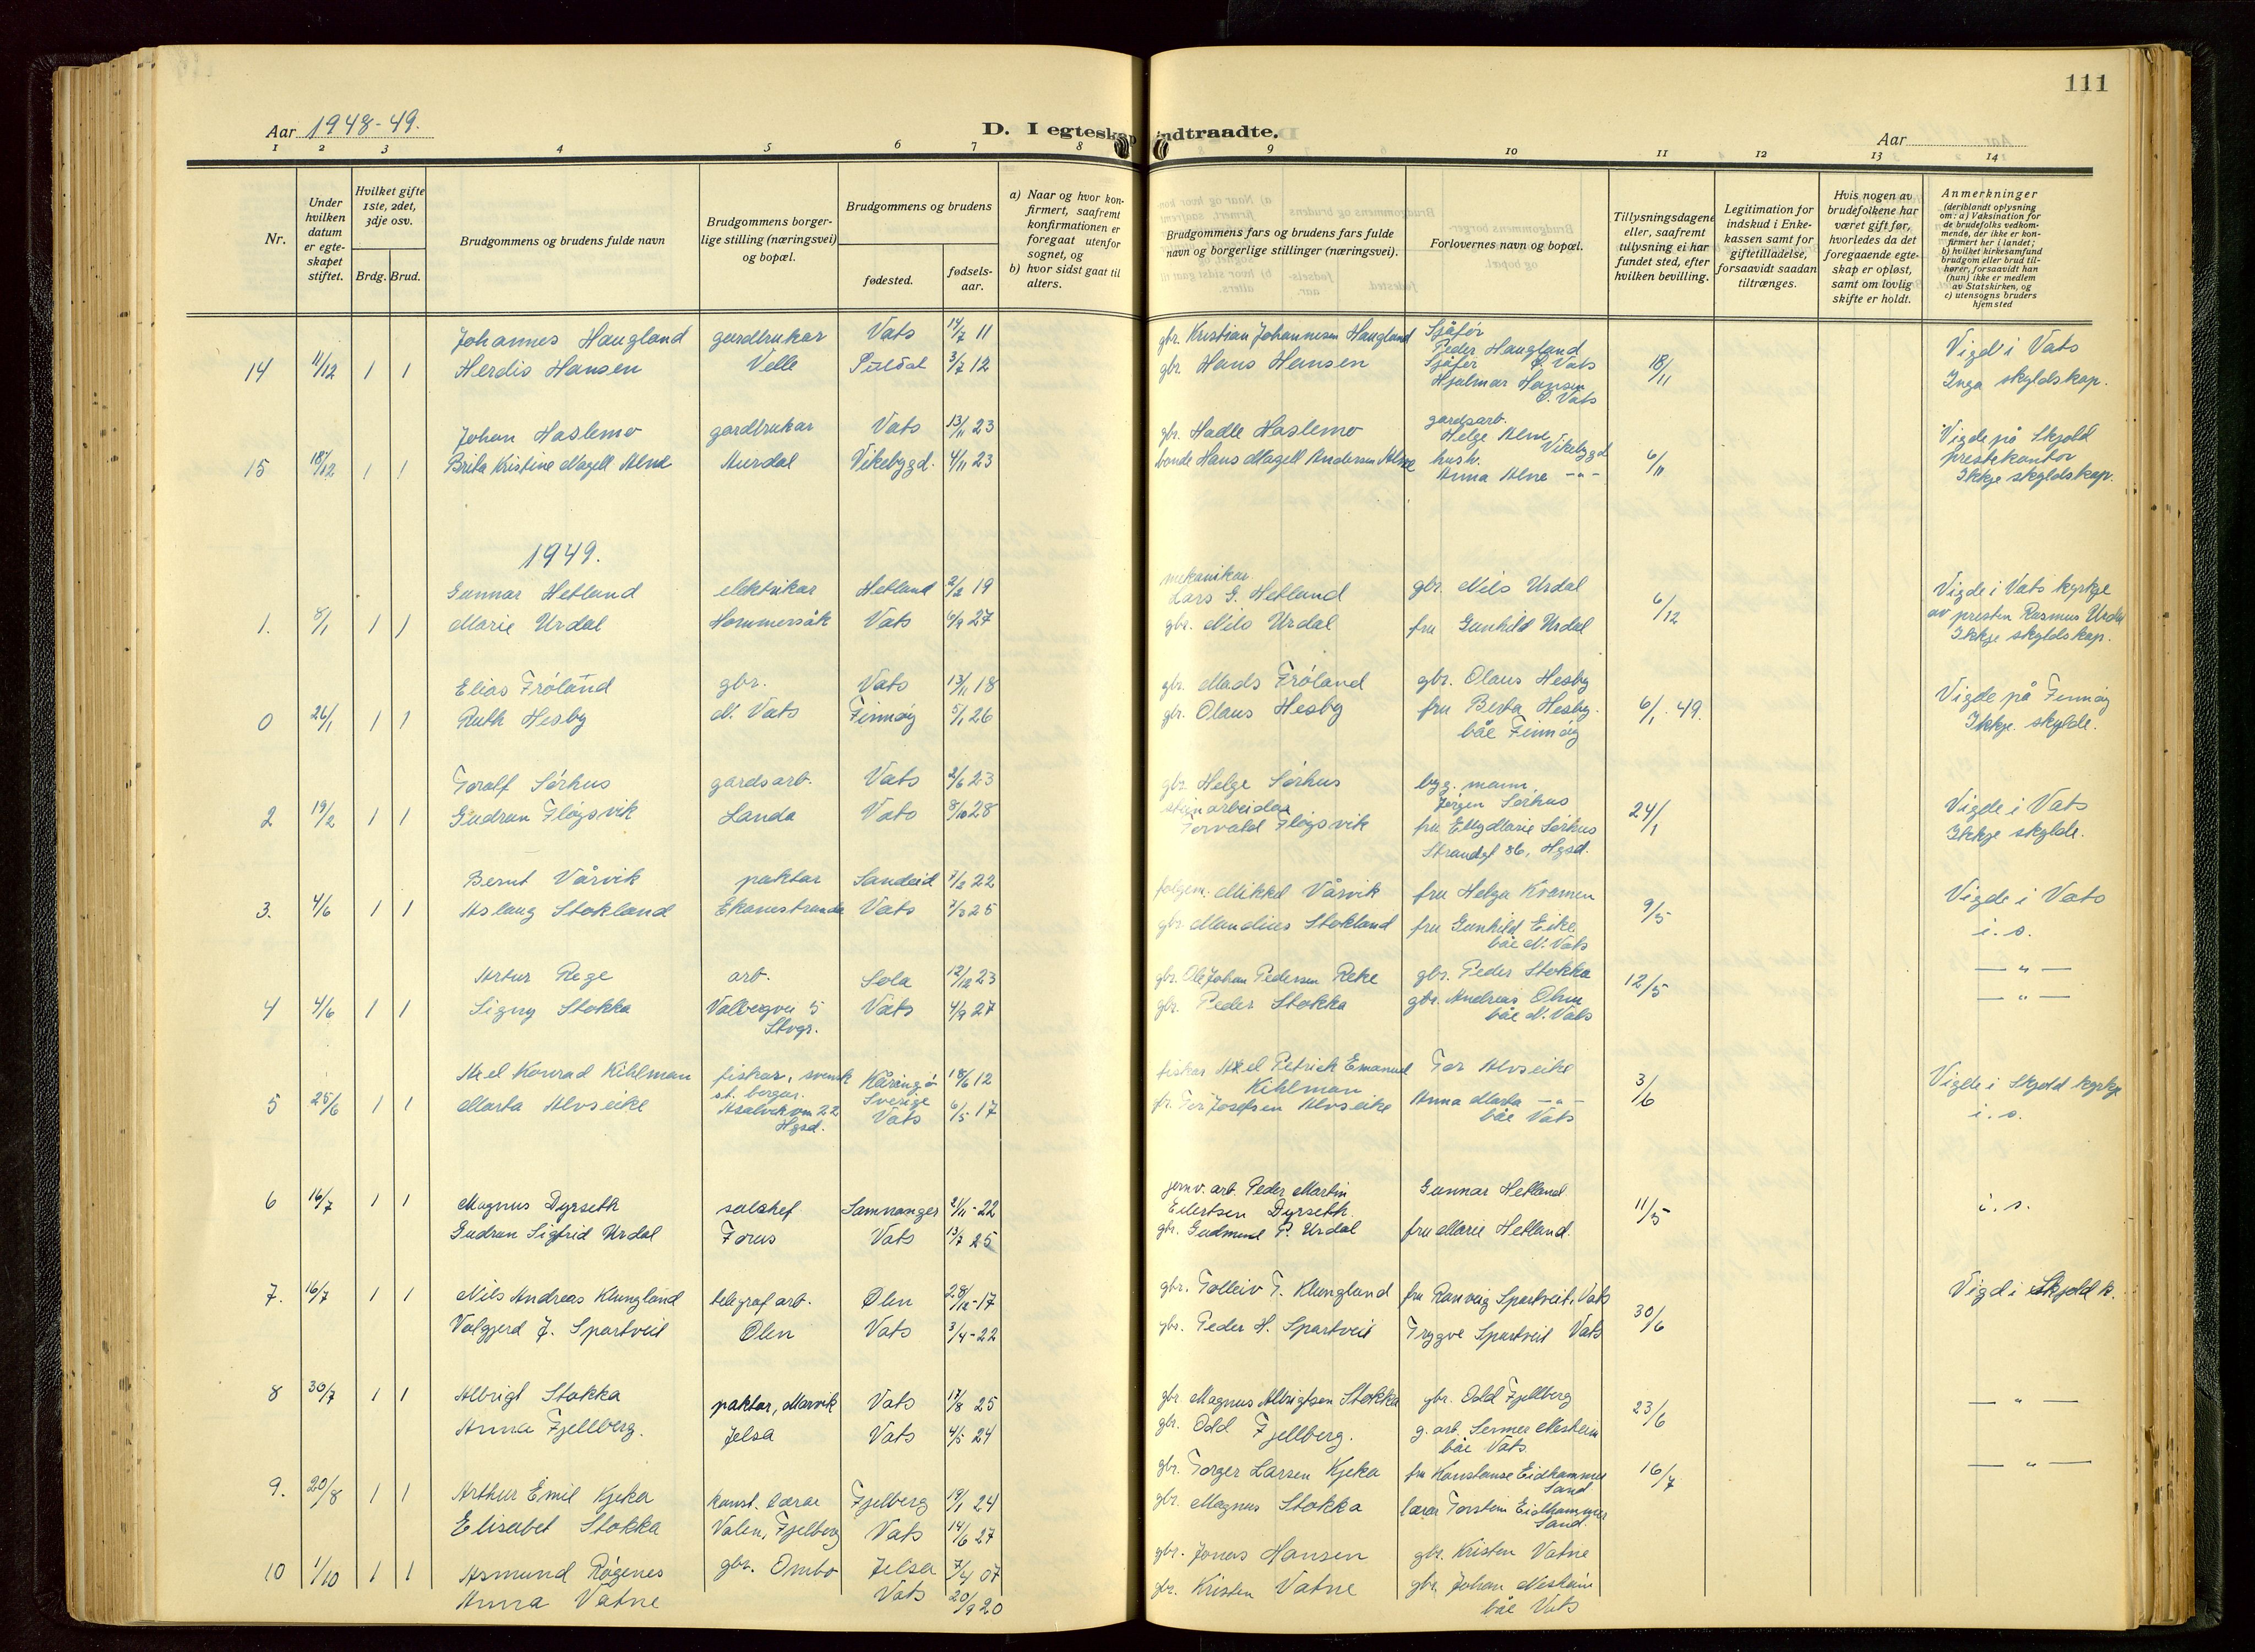 111
Aar 1948-49.
D. I egteskap indtraadte.
Aar
1 2 3 4 5 6 7 8 9 10 11 12 13 14
Nr.
Under hvilken datum er egteskapet stiftet.
Hvilket gifte 1ste, 2det, 3dje osv.
Brdg. Brud.
Brudgommens og brudens fulde navn
Brudgommens borgerlige stilling (næringsvei) og bopæl.
Brudgommens og brudens
fødested.
fødselsaar.
a) Naar og hvor konfirmert, saafremt konfirmationen er foregaat utenfor sognet, og
b) hvor sidst gaat til alters.
Brudgommens fars og brudens fars fulde navn og borgerlige stillinger (næringsvei).
Forlovernes navn og bopæl.
Tillysningsdagene eller, saafremt tillysning ei har fundet sted, efter hvilken bevilling.
Legitimation for indskud i Enkekassen samt for giftetilladelse, forsaavidt saadan tiltrænges.
Hvis nogen av brudefolkene har været gift før, hvorledes da det foregaaende egteskap er opløst, samt om lovlig skifte er holdt.
Anmerkninger
(deriblandt oplysning om: a) Vaksination for de brudefolks vedkommende, der ikke er konfirmert her i landet; b) hvilket kirkesamfund brudgom eller brud tilhører, forsaavidt han (hun) ikke er medlem av Statskirken, og c) utensogns bruders hjemsted
Johannes Haugland gardbrukar Vats 14/7 11 gbr. Kristian Johannesen Haugland Sjåfør Peder Haugland Vigd i Vats
14 11/12 1 1 Herdis Hansen Velle 3/7 12 gbr. Hans Hansen Sjåfør Ø. Vats Hjalmar Hansen Ø. Vats 18/11 Inga skyldskap.
Johan Haslemo gardbrukar Vats 13/11 23 gbr. Hadle Haslemo gardsarb. Helge Alne Vikebygd Vigde på Skjold
15 18/12 1 1 Brita Kristine Magell Alne Aurdal Vikebygd. 4/11 23 bonde Hans Magell Andersen Alne hush. Anna Alne -"- 6/11 prestekontor Ikkje skyldskap.
1949.
Gunnar Hetland elektrikar Hetland 2/2 19 mekanikar Lars G. Hetland gbr. Nils Urdal Vigde i Vats kyrkje
1. 8/1 1 1 Marie Urdal Hommersåk Vats 6/9 27 gbr. Nils Urdal fru Gunhild Urdal 6/12 av presten Rasmus Urdal Ikkje skyldskap.
Elias Frøland gbr. Vats 13/11 18 gbr. Mads Frøland gbr. Olaus Hesby Vigde på Finnøy
0 26/1 1 1 Ruth Hesby N. Vats Finnøy 5/1 26 gbr. Olaus Hesby fru Berta Hesby. båe Finnøy 6/1. 49. Ikkje skylde.
Toralf Sørhus gardsarb. Vats 2/6 23 gbr. Helge Sørhus byg. mann. Jørgen Sørhus Vigde i Vats
2 19/2 1 1 Gudrun Fløgsvik Landa Vats 8/10 28 steinarbeidar Torvald Fløgsvik fru Elly Marie Sørhus Strandgt 86, Hgsd. 24/1 Ikkje skylde.
Bernt Vårvik paktar Sandeid 1/2 22 folgem. Mikkel Vårvik fru Helga Kvamen Vigde i Vats
3. 4/6 1 1 Aslaug Stokland Ekanestranda Vats 7/3 25 gbr. Mandius Stokland fru Gunhild Eike båe N. Vats 9/5 i. s.
Artur Rege arb. Sola 12/12 23 gbr. Ole Johan Pedersen Reke gbr. Peder Stokka -"-
4 4/6 1 1 Signy Stokka Valbergvei 5 Stvgr. Vats 4/9 27 gbr. Peder Stokka gbr. Andreas båe N. Vats 12/5 -"-
Axel Konrad Kihlman fiskar, svensk st. borgar. Käringö Sverige 18/6 12 fiskar Axel Petrick Emanuel Kihlman Tor Alvseike Vigde i Skjold kyrkje
5 25/6 1 1 Marta Alvseike 22 Hgsd. Vats 6/5 17 Tor Josefsen Alvseike Anna Marta -"- båe Vats 3/6 i. s.
6 16/7 1 1 Magnus Dyrseth salshef Samnanger 21/11-22 jernv. arb. Peder Martin Eilertsen Dyrseth. Gunnar Hetland 11/5 i. s.
Gudrun Sigfrid Urdal Forus Vats 13/7 25 gbr. Gudmund P. Urdal fru Marie Hetland.
7. 16/7 1 1 Nils Andreas Klungland telegraf arb. Ølen 28/12-17 gbr. Tolleiv T. Klungland fru Ranveig Spartveit, Vats 30/6 Vigd i Skjold k.
Valgjerd J. Spartveit Ølen Vats 3/4-22 gbr. Peder H. Spartveit Trygve Spartveit Vats
8 30/7 1 1 Albrigt Stokka paktar, Marvik Vats 17/8 25 gbr. Magnus Albrigtsen Stokka gbr. Odd Fjellberg 23/6 -"-
Anna Fjellberg. Jelsa Vats 4/5 24 gbr. Odd Fjellberg. g. arb. Sermer Nesheim båe Vats
9. 20/8 1 1 Arthur Emil Kjeka konst. lærar Fjelberg 19/1 24 gbr. Torger Larsen Kjeka fru Konstanse Eidhammer Sand 16/7 -"-
Elisabet Stokka Valen, Fjelberg Vats 14/6 27 gbr. Magnus Stokka lærar Torstein Eidhammer Sand.
10 1/10 1 1 Asmund Røgenes gbr. Ombo Jelsa 7/4 07 gbr. Jonas Hansen gbr. Kristen Vatne
Anna Vatne Vats 20/9 20 gbr. Kristen Vatne gbr. Johan Nesheim båe Vats